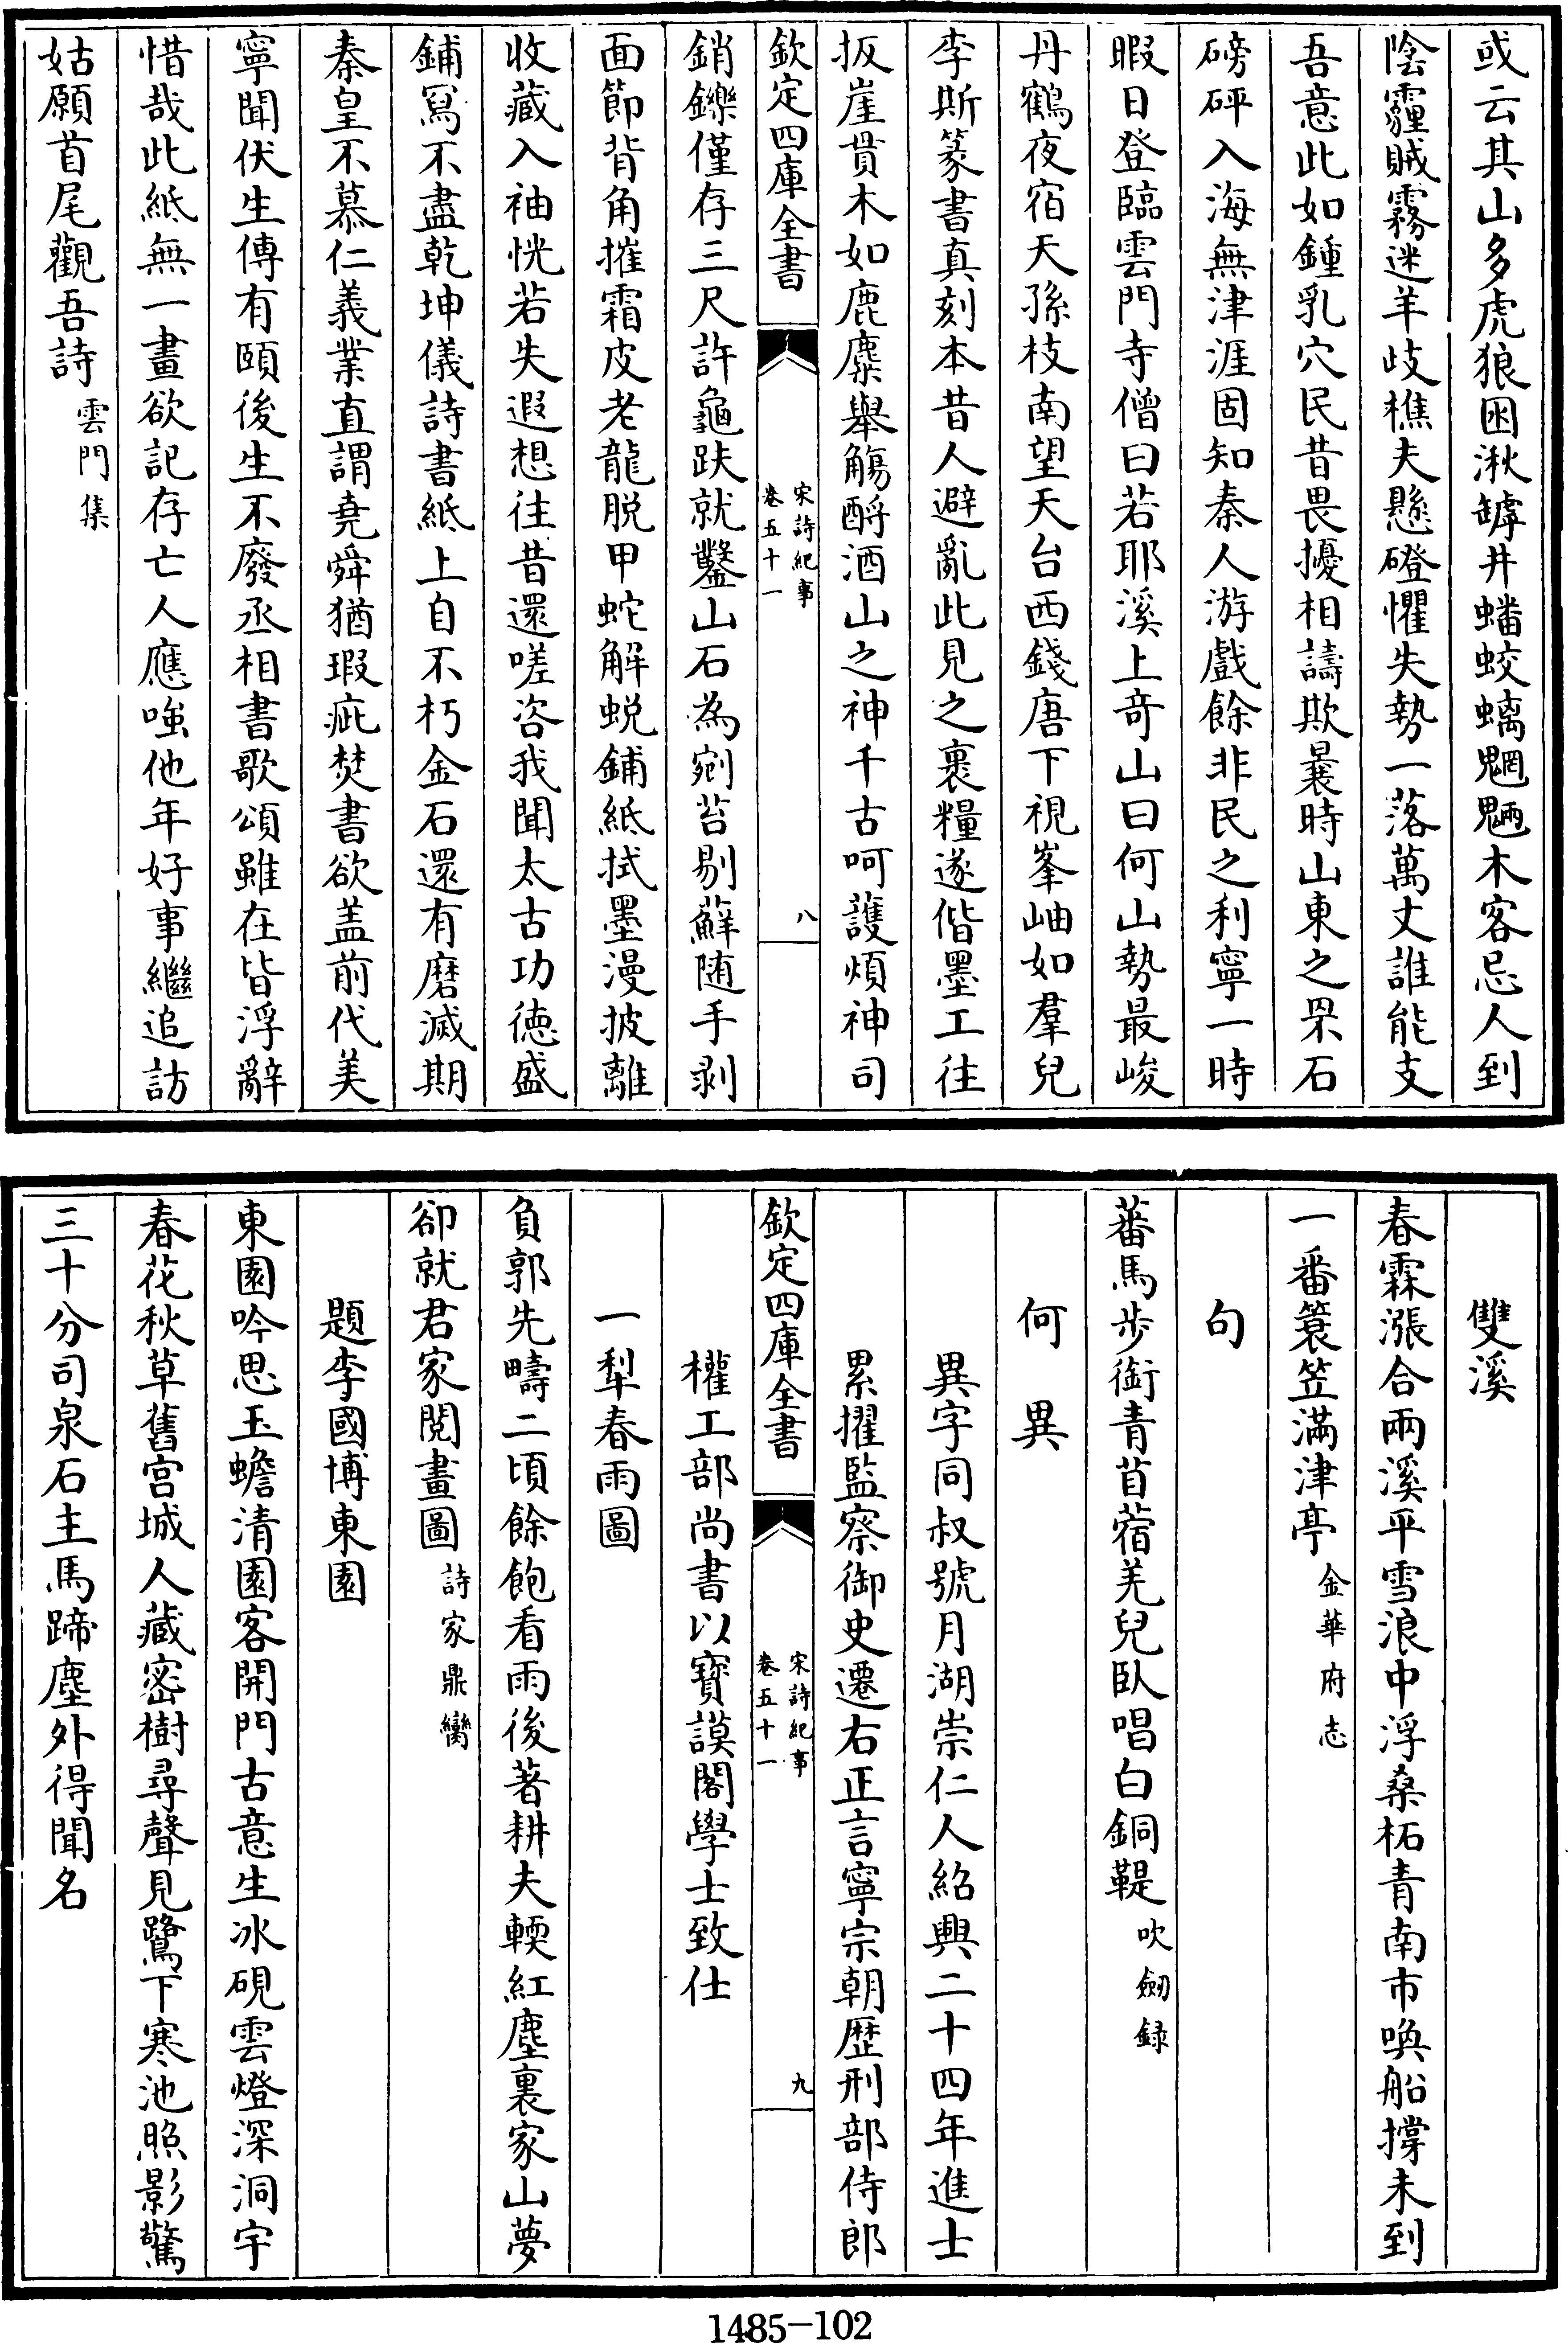 或云其山多虎狼困湫罅井蟠蛟螭魍魎木客忌人到
陰霾賊霧迷羊歧樵夫懸磴懼失勢一落萬丈誰能支
吾意此如鍾乳穴民昔畏擾相譸欺曩時山東之罘石
磅砰入海無津涯固知秦人游戲餘非民之利寧一時
暇日登臨雲門寺僧曰若耶溪上奇山曰何山勢最峻
丹鶴夜宿天孫枝南望天台西錢唐下視峯岫如羣兒
李斯篆書真刻本昔人避亂此見之裏糧遂偕墨工往
扳崖貫木如鹿麋舉觴酹酒山之神千古呵護煩神司
欽定四庫全書
宋詩紀事
卷五十一
八
銷鑠僅存三尺許龜趺就鑿山石為剜苔剔蘚随手剥
面節背角摧霜皮老龍脱甲蛇解蜕鋪紙拭墨漫披離
收藏入袖恍若失遐想往昔還嗟咨我聞太古功徳盛
鋪寫不盡乾坤儀詩書紙上自不朽金石還有磨滅期
秦皇不慕仁義業直謂堯舜猶瑕疵焚書欲盖前代美
寧聞伏生傳有頤後生不廢丞相書歌頌雖在皆浮辭
惜哉此紙無一畫欲記存亡人應嗤他年好事繼追訪
姑願首尾觀吾詩雲門集
雙溪
春霖漲合兩溪平雪浪中浮桑柘青南市喚船撐未到
一番簑笠滿津亭金華府志
句
蕃馬步銜青苜蓿羌兒臥唱白銅鞮吹劒録
何異
異字同叔號月湖崇仁人紹興二十四年進士
累擢監察御史遷右正言寧宗朝歴刑部侍郎
欽定四庫全書
宋詩紀事
卷五十一
九
權工部尚書以寶謨閣學士致仕
一犁春雨圖
負郭先疇二頃餘飽看雨後著耕夫輭紅塵裏家山夢
卻就君家閲畫圖詩家鼎臠
題李國博東園
東園吟思玉蟾清園客開門古意生冰硯雲燈深洞宇
春花秋草舊宫城人藏密樹尋聲見鷺下寒池照影驚
三十分司泉石主馬蹄塵外得聞名
1485-102